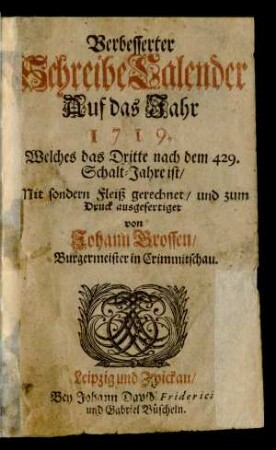 Verbesserter
Schreibe Calender
Auf das Jahr
1719.
Welches das Dritte nach dem 429.
Schalt-Jahre ist/
Mit sondern Fleiß gerechnet/ und zum
Druck ausgefertiget
von
Johann Grossen/
Burgermeister in Crimmitschau.
Leipzig und Zwickau/
Bey Johann David Friderici
und Gabriel Büscheln.